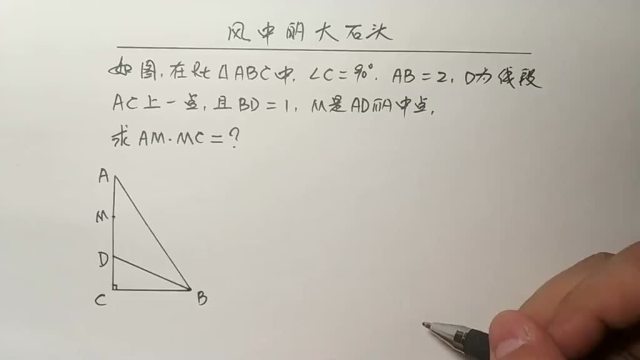 风中的大石头
如图,在Rt△ABC中,∠C=90°,AB=2,D为线段
AC上一点,且BD=1,M是AD的中点,
求AM·MC=?
A
M
D
C
B